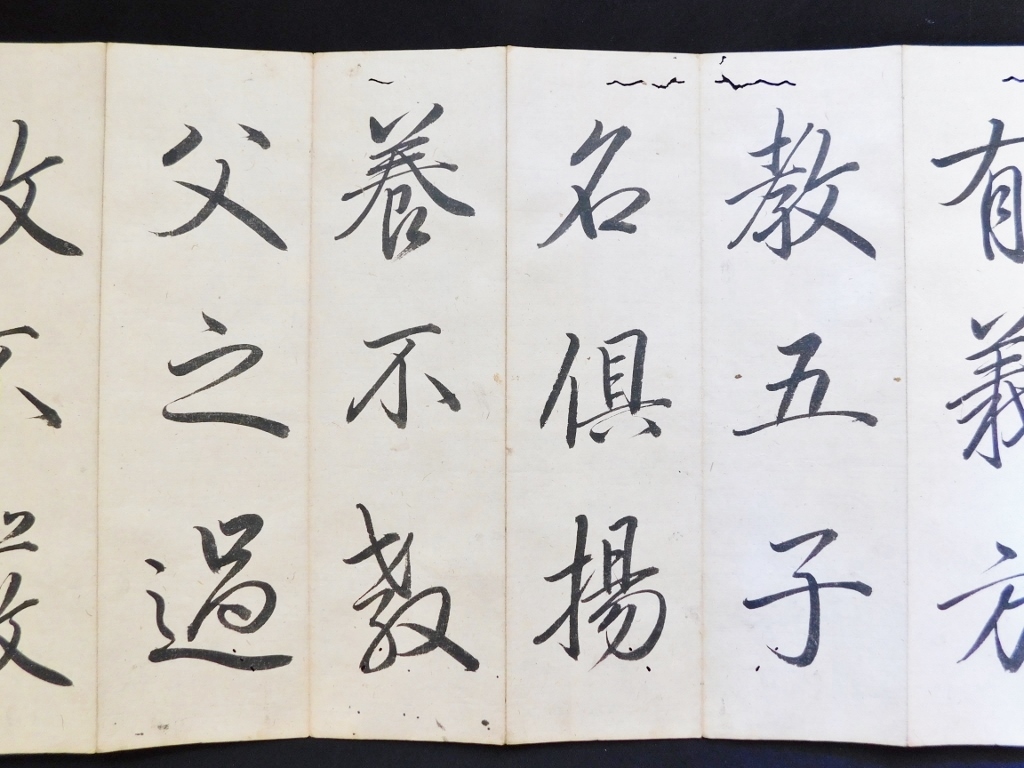 有義方
教五子
名俱揚
養不教
父之過
教不嚴